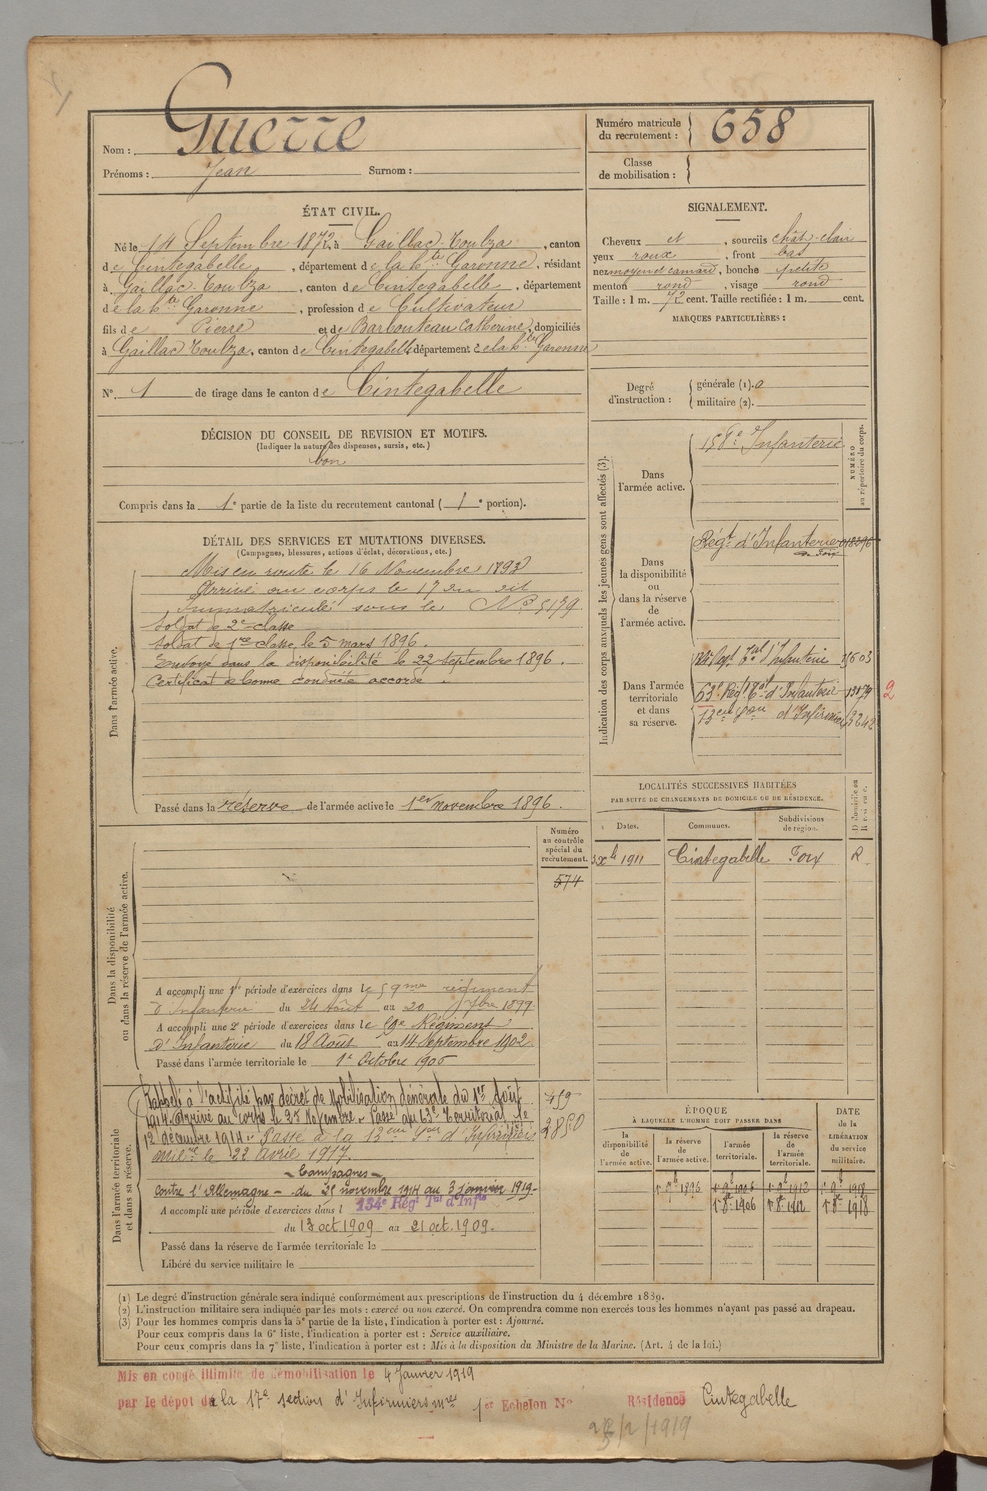 Nom : Guerre
Prénoms : Jean Surnom :
Numéro matricule du recrutement : 658
Classe de mobilisation :
ÉTAT CIVIL.
Né le 14 Septembre 1872, à Gaillac-Toulza, canton
de Cintegabelle, département de la hte Garonne, résidant
à Gaillac-Toulza, canton de Cintegabelle, département
de la hte Garonne, profession de Cultivateur
fils de Pierre et de Barbouteau Catherine, domiciliés
à Gaillac Toulza, canton de Cintegabelle, département de la hte Garonne
N° 1 de tirage dans le canton de Cintegabelle
SIGNALEMENT.
Cheveux et, sourcils chât-clair
yeux roux, front bas
nez moyen et camard, bouche petite
menton rond, visage rond
Taille : 1 m. 72 cent. Taille rectifiée : 1 m. cent.
MARQUES PARTICULIÈRES :
Degré d'instruction : générale (1). 0
militaire (2).
DÉCISION DU CONSEIL DE REVISION ET MOTIFS.
(Indiquer la nature des dispenses, sursis, etc.)
bon
Compris dans la 1e partie de la liste du recrutement cantonal ( 1e portion).
DÉTAIL DES SERVICES ET MUTATIONS DIVERSES.
(Campagnes, blessures, actions d'éclat, décorations, etc.)
Dans l'armée active.
Mis en route le 16 Novembre 1893
Arrivé au corps le 17 du dit
Immatriculé sous le N° 5179
Soldat de 2e classe
Soldat de 1re classe le 5 mars 1896.
Envoyé dans la disponibilité le 22 septembre 1896.
Certificat de bonne conduite accordé.
Passé dans la réserve de l'armée active le 1er novembre 1896.
Indication des corps auxquels les jeunes gens sont affectés (3).
NUMÉRO au répertoire du corps.
Dans l'armée active.
158e Infanterie
Dans la disponibilité ou dans la réserve de l'armée active.
Régt d'Infanterie
de Foix
Dans l'armée territoriale et dans sa réserve.
Regt Tal d'Infanterie
63e Régt Tal d'Infanterie
13eme Son d'Infirmiers
2
LOCALITÉS SUCCESSIVES HABITÉES
PAR SUITE DE CHANGEMENTS DE DOMICILE OU DE RÉSIDENCE.
Dates. Communes. Subdivisions de région. D domicile ou R résidence.
1911 Cintegabelle Foix R
Numéro au contrôle spécial du recrutement.
574
Dans la disponibilité ou dans la réserve de l'armée active.
A accompli une 1re période d'exercices dans le 59me régiment
d'Infanterie du 24 Août au 20 7bre 1899.
A accompli une 2e période d'exercices dans le Régiment
d'Infanterie du 18 Août au 14 Septembre 1902
Passé dans l'armée territoriale le 1er Octobre 1906
Dans l'armée territoriale et dans sa réserve.
Rappelé à l'activité par décret de Mobilisation Générale du 1er Août
1914. Arrivé au corps le 25 Novembre. Passé au 63e Territorial le
12 décembre 1914. Passé à la 13eme Son d'Infirmiers
milres le 22 avril 1917.
Campagnes
contre l'Allemagne du 25 novembre 1914 au 3 janvier 1919.
A accompli une période d'exercices dans l 134e Régt Tal d'Inftie
du 13 oct. 1909 au 21 oct. 1909.
Passé dans la réserve de l'armée territoriale le
Libéré du service militaire le
459
2850
ÉPOQUE
À LAQUELLE L'HOMME DOIT PASSER DANS
DATE de la LIBÉRATION du service militaire.
la disponibilité de l'armée active. la réserve de l'armée active. l'armée territoriale. la réserve de l'armée territoriale.
1er 9b 1895 1er 9b 1906 1er 9b 1912 1er 9b 1918
1er 8b 1906 1er 8b 1912 1er 8b 1918
(1) Le degré d'instruction générale sera indiqué conformément aux prescriptions de l'instruction du 4 décembre 1889.
(2) L'instruction militaire sera indiquée par les mots : exercé ou non exercé. On comprendra comme non exercés tous les hommes n'ayant pas passé au drapeau.
(3) Pour les hommes compris dans la 5e partie de la liste, l'indication à porter est : Ajourné.
Pour ceux compris dans la 6e liste, l'indication à porter est : Service auxiliaire.
Pour ceux compris dans la 7e liste, l'indication à porter est : Mis à la disposition du Ministre de la Marine. (Art. 4 de la loi.)
Mis en congé illimité de démobilisation le 4 Janvier 1919
par le dépot de la 17e section d'Infirmiers mres 1er Echelon N° Résidence Cintegabelle
/2/1919